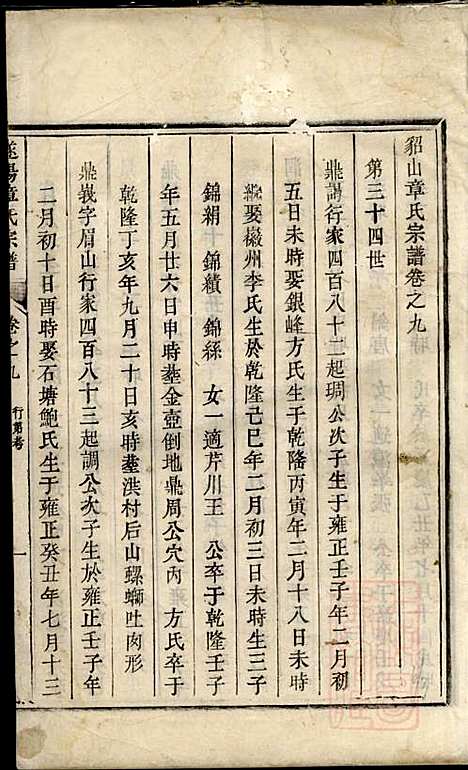 貂山章氏宗譜卷之九
第三十四世
鼎謁行家四百八十二起琱公次子生于雍正壬子年二月初
五日未時娶銀峰方氏生于乾隆丙寅年二月十八日未時
繼娶徽州李氏生於乾隆己巳年二月初三日未時生三子
錦絹 錦績 錦絲 女一適芹川王 公卒于乾隆壬子
年五月廿六日申時塟金壺倒地鼎周公穴內 方氏卒于
乾隆丁亥年九月二十日亥時塟洪村后山螺螄吐肉形
鼎義字眉山行家四百八十三起調公次子生於雍正壬子年
二月初十日酉時娶石塘鮑氏生于雍正癸丑年七月十三
遂陽章氏宗譜 卷之九 行第考 一